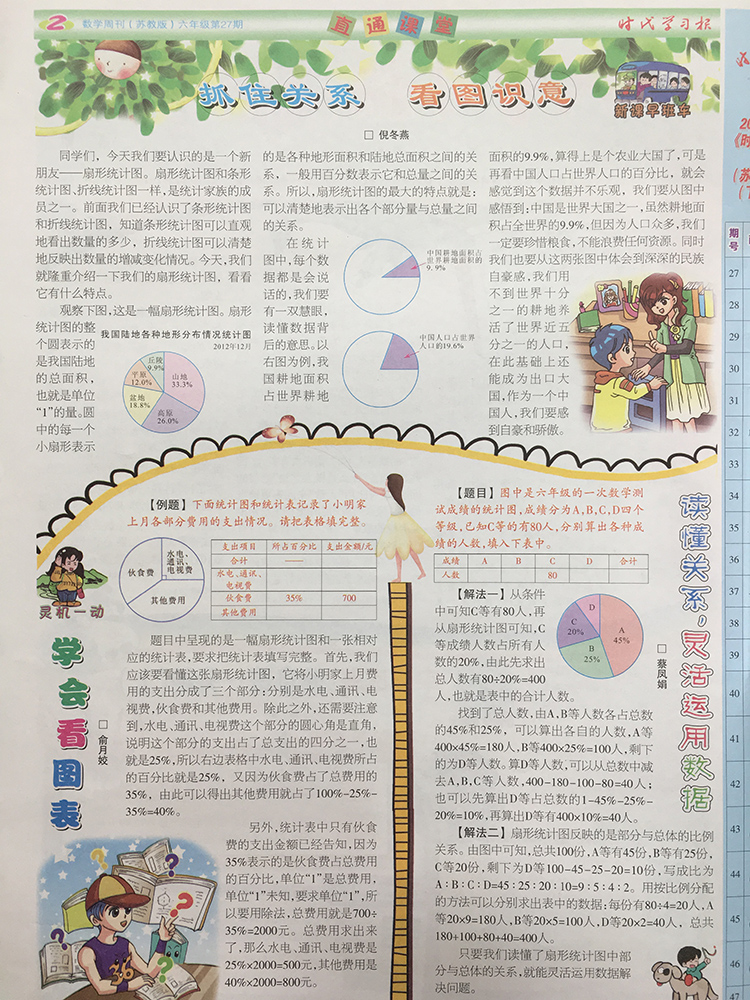 2 数学周刊(苏教版)六年级第27期
直通课堂
时代学习报
抓住关系 看图识意
新课早班车
□ 倪冬燕
同学们，今天我们要认识的是一个新
朋友——扇形统计图。扇形统计图和条形
统计图、折线统计图一样，是统计家族的成
员之一。前面我们已经认识了条形统计图
和折线统计图，知道条形统计图可以直观
地看出数量的多少，折线统计图可以清楚
地反映出数量的增减变化情况。今天，我们
就隆重介绍一下我们的扇形统计图，看看
它有什么特点。
观察下图，这是一幅扇形统计图。扇形
统计图的整
个圆表示的
是我国陆地
的总面积，
也就是单位
“1”的量。圆
中的每一个
小扇形表示
我国陆地各种地形分布情况统计图
2012年12月
丘陵
9.9%
平原
12.0%
山地
33.3%
盆地
18.8%
高原
26.0%
的是各种地形面积和陆地总面积之间的关
系，一般用百分数表示它和总量之间的关
系。所以，扇形统计图的最大的特点就是：
可以清楚地表示出各个部分量与总量之间
的关系。
在统计
图中，每个数
据都是会说
话的，我们要
有一双慧眼，
读懂数据背
后的意思。以
右图为例，我
国耕地面积
占世界耕地
中国耕地面积占
世界耕地面积的
9.9%
中国人口占世界
人口的19.6%
面积的9.9%，算得上是个农业大国了，可是
再看中国人口占世界人口的百分比，就会
感觉到这个数据并不乐观，我们要从图中
感悟到：中国是世界大国之一，虽然耕地面
积占全世界的9.9%，但因为人口众多，我们
一定要珍惜粮食，不能浪费任何资源。同时
我们也要从这两张图中体会到深深的民族
自豪感，我们用
不到世界十分
之一的耕地养
活了世界近五
分之一的人口，
在此基础上还
能成为出口大
国，作为一个中
国人，我们要感
到自豪和骄傲。
灵机一动
学会看图表
□ 俞月姣
【例题】下面统计图和统计表记录了小明家
上月各部分费用的支出情况。请把表格填完整。
伙食费
水电、
通讯、
电视费
其他费用
支出项目 所占百分比 支出金额/元
合计 ——
水电、通讯、
电视费
伙食费 35% 700
其他费用
题目中呈现的是一幅扇形统计图和一张相对
应的统计表，要求把统计表填写完整。首先，我们
应该要看懂这张扇形统计图，它将小明家上月费
用的支出分成了三个部分：分别是水电、通讯、电
视费，伙食费和其他费用。除此之外，还需要注意
到，水电、通讯、电视费这个部分的圆心角是直角，
说明这个部分的支出占了总支出的四分之一，也
就是25%，所以右边表格中水电、通讯、电视费所占
的百分比就是25%，又因为伙食费占了总费用的
35%，由此可以得出其他费用就占了100%-25%-
35%=40%。
另外，统计表中只有伙食
费的支出金额已经告知，因为
35%表示的是伙食费占总费用
的百分比，单位“1”是总费用，
单位“1”未知，要求单位“1”，所
以要用除法，总费用就是700÷
35%=2000元。总费用求出来
了，那么水电、通讯、电视费是
25%×2000=500元，其他费用是
40%×2000=800元。
读懂关系，灵活运用数据
□ 蔡凤娟
【题目】图中是六年级的一次数学测
试成绩的统计图，成绩分为A,B,C,D四个
等级，已知C等的有80人，分别算出各种成
绩的人数，填入下表中。
成绩 A B C D 合计
人数 80
D
C
20%
A
45%
B
25%
【解法一】从条件
中可知C等有80人，再
从扇形统计图可知，C
等成绩人数占所有人
数的20%，由此先求出
总人数有80÷20%=400
人，也就是表中的合计人数。
找到了总人数，由A,B等人数各占总数
的45%和25%，可以算出各自的人数，A等
400×45%=180人，B等400×25%=100人，剩下
的为D等人数。算D等人数，可以从总数中减
去A,B,C等人数，400-180-100-80=40人；
也可以先算出D等占总数的1-45%-25%-
20%=10%，再算出D等有400×10%=40人。
【解法二】扇形统计图反映的是部分与总体的比例
关系。由图中可知，总共100份，A等有45份，B等有25份，
C等20份，剩下为D等100-45-25-20=10份，写成比为
A∶B∶C∶D=45∶25∶20∶10=9∶5∶4∶2。用按比例分配
的方法可以分别求出表中的数据：每份有80÷4=20人，A
等20×9=180人，B等20×5=100人，D等20×2=40人，总共
180+100+80+40=400人。
只要我们读懂了扇形统计图中部
分与总体的关系，就能灵活运用数据解
决问题。
期
号
27
28
29
30
31
32
33
34
35
36
37
38
39
40
41
42
43
44
45
46
47